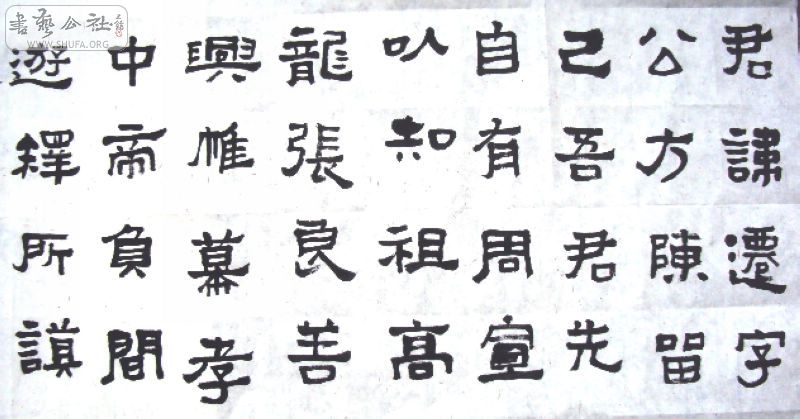 書藝公社
WWW.SHUFA.ORG
君諱遷字
公方陳留
己吾君先
自有周宣
以知祖高
龍張良善
興帷幕孝
中帝負間
遊釋所謨